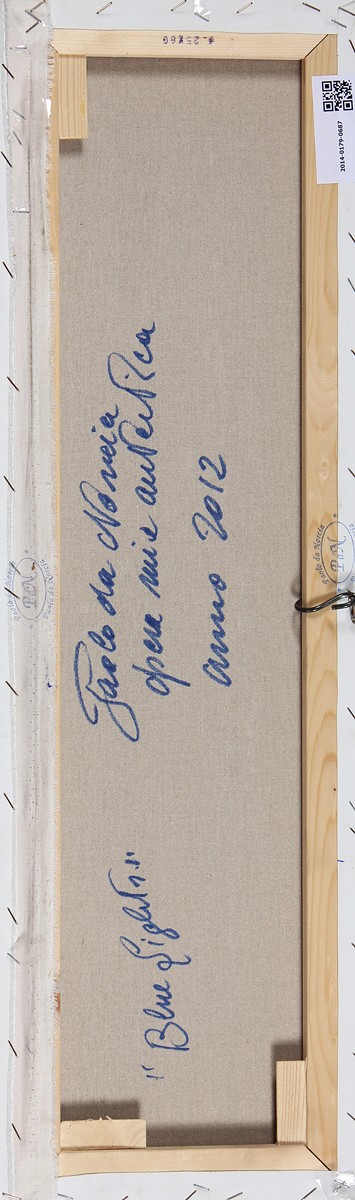 Paolo da Norcia
opera mia autentica
anno 2012
"Blue Lights"
2014-0179-0687
Paolo da Norcia
PdN
Paolo da Norcia
Paolo da Norcia
PdN